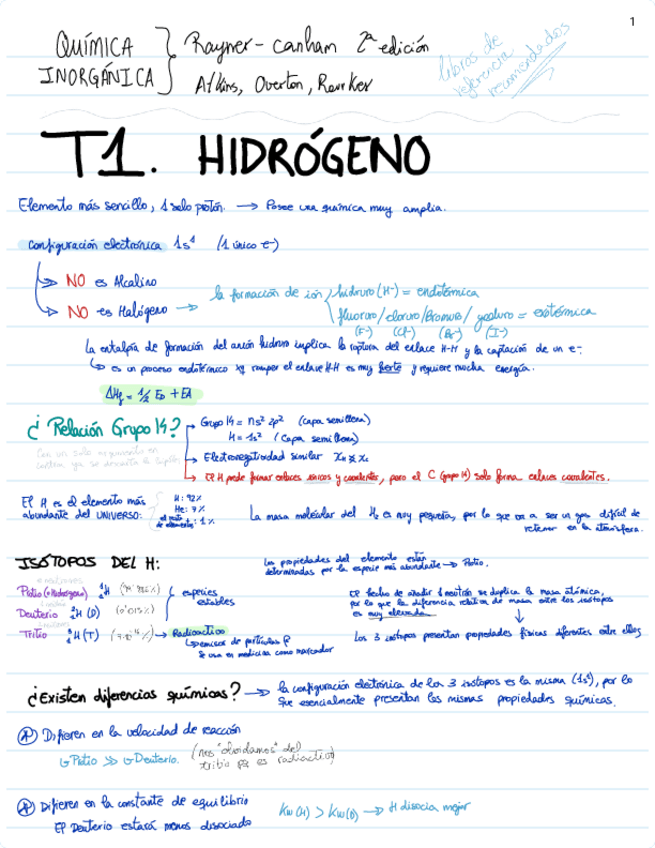 1
QUÍMICA INORGÁNICA } Rayner-canham 2ª edición
Atkins, Overton, Rourker
libros de referencia recomendados
T1. HIDRÓGENO
Elemento más sencillo, 1 solo protón. → Posee una química muy amplia.
Configuración electrónica 1s¹ (1 único e⁻)
NO es Alcalino
NO es Halógeno → la formación de ión hidruro (H-) = endotérmica
fluoruro/cloruro/bromuro/yoduro = exotérmica
(F-) (Cl-) (Br-) (I-)
La entalpía de formación del anión hidruro implica la ruptura del enlace H-H y la captación de un e-.
es un proceso endotérmico xq romper el enlace H-H es muy fuerte y requiere mucha energía.
ΔHf = 1/2 ED + EA
¿Relación Grupo 14?
Grupo 14 = ns² 2p² (capa semillena)
H = 1s¹ (capa semillena)
Electronegatividad similar XH ≈ Xc
El H puede formar enlaces iónicos y covalentes, pero el C (grupo 14) solo forma enlaces covalentes.
Con un solo argumento en contra ya se descarta la
El H es el elemento más abundante del UNIVERSO:
H: 92%
He: 7%
el resto de elementos: 1%
La masa molecular del H₂ es muy pequeña, por lo que va a ser un gas difícil de retener en la atmósfera.
ISÓTOPOS DEL H:
Las propiedades del elemento están determinadas por la especie más abundante → Protio.
Protio (o Hidrógeno) ¹H (99'985%)
Deuterio ²H (D) (0'015%)
especies estables
Tritio ³H (T) → Radioactivo
emisor de partículas β
Se usa en medicina como marcador
El hecho de añadir 1 neutrón se duplica la masa atómica, por lo que la diferencia relativa de masa entre los isótopos es muy elevada.
Los 3 isótopos presentan propiedades físicas diferentes entre ellos
¿Existen diferencias químicas? → la configuración electrónica de los 3 isótopos es la misma (1s¹), por lo que esencialmente presentan las mismas propiedades químicas.
Difieren en la velocidad de reacción
v Protio >> v Deuterio. (nos "olvidamos" del tritio pq es radioactivo)
Difieren en la constante de equilibrio
El Deuterio estará menos disociado
Kw(H) > Kw(D) → H disocia mejor